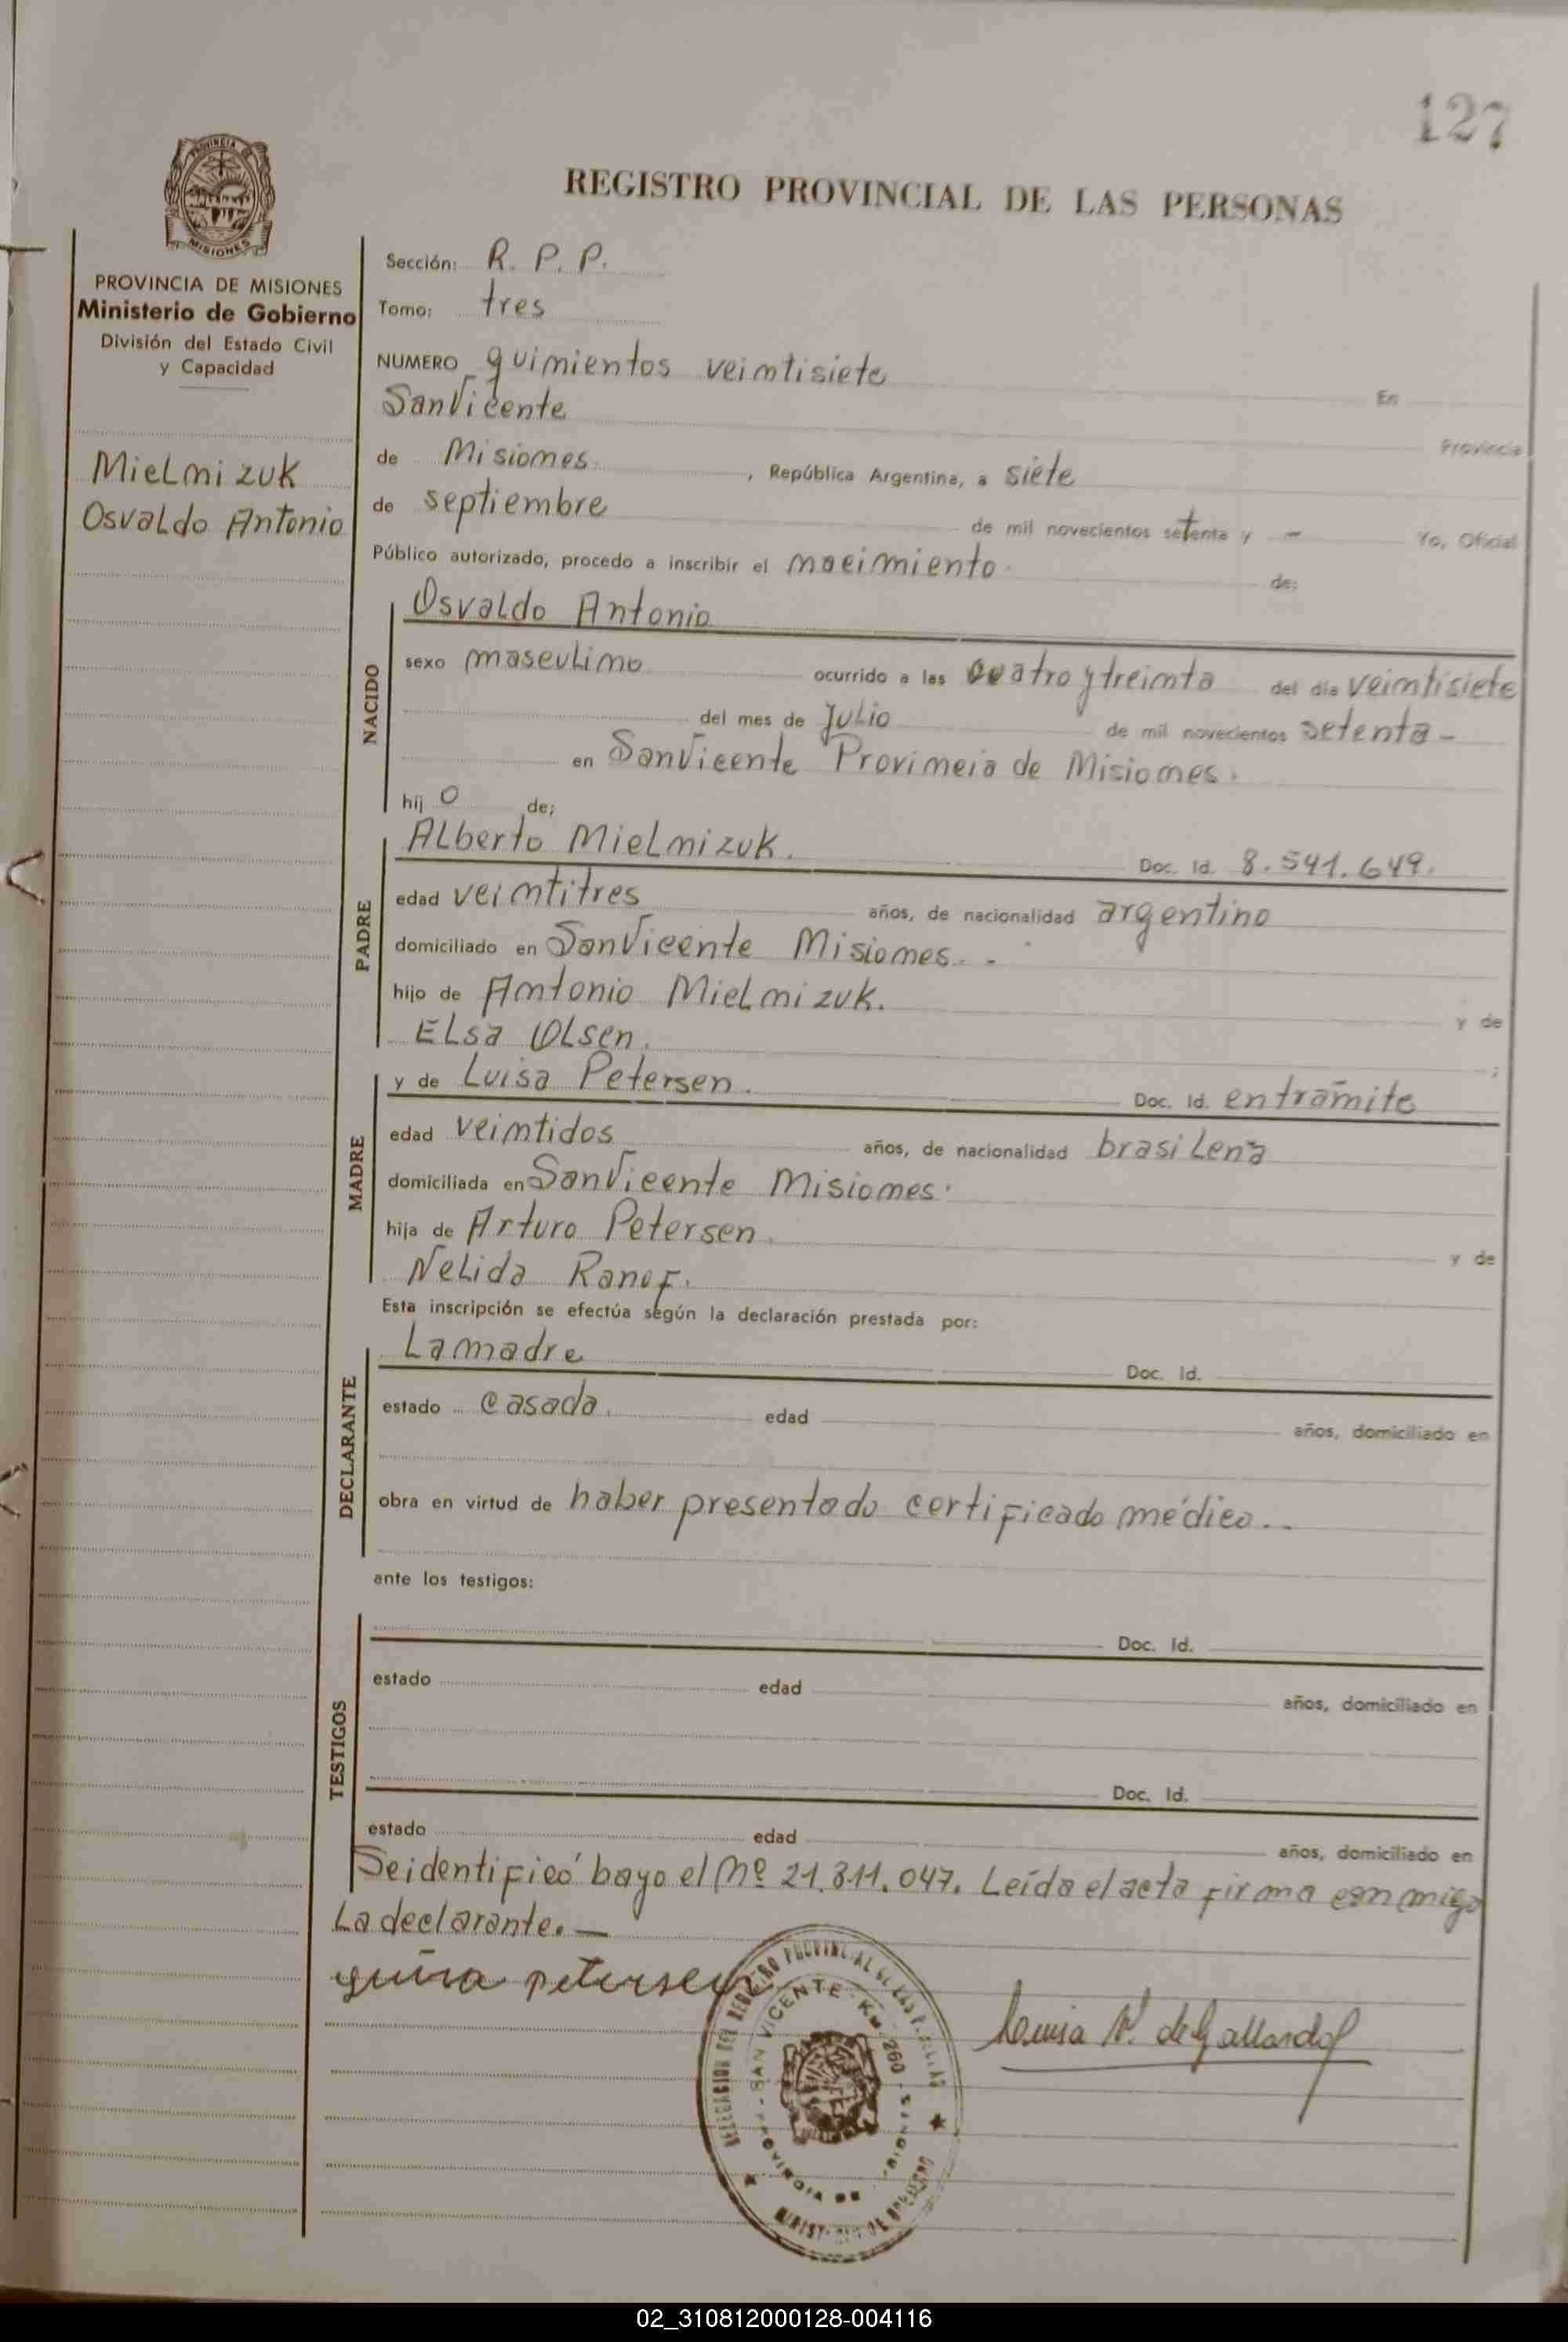 127
PROVINCIA DE
MISIONES
REGISTRO PROVINCIAL DE LAS PERSONAS
PROVINCIA DE MISIONES
Ministerio de Gobierno
División del Estado Civil
y Capacidad
Mielnizuk
Osvaldo Antonio
Sección: R. P. P.
Tomo: tres
NUMERO quinientos veintisiete En
San Vicente Provincia
de Misiones , República Argentina, a siete
de septiembre de mil novecientos setenta y - Yo, Oficial
Público autorizado, procedo a inscribir el nacimiento de:
NACIDO
Osvaldo Antonio
sexo masculino ocurrido a las cuatro y treinta del día veintisiete
del mes de Julio de mil novecientos setenta -
en San Vicente Provincia de Misiones.
hij o de;
PADRE
Alberto Mielnizuk. Doc. Id. 8.541.649.
edad veintitres años, de nacionalidad argentino
domiciliado en San Vicente Misiones. -
hijo de Antonio Mielnizuk. y de
Elsa Olsen. ;
MADRE
y de Luisa Petersen. Doc. Id. en trámite
edad veintidos años, de nacionalidad brasilena
domiciliada en San Vicente Misiones.
hija de Arturo Petersen. y de
Nelida Ranof.
Esta inscripción se efectúa según la declaración prestada por:
DECLARANTE
La madre Doc. Id.
estado casada. edad años, domiciliado en
obra en virtud de haber presentado certificado médico..
ante los testigos:
TESTIGOS
Doc. Id.
estado edad años, domiciliado en
Doc. Id.
estado edad años, domiciliado en
Se identificó bayo el Nº 21.811.047. Leída el acta firma conmigo
La declarante. —
Luisa petersen
Luisa N. de Gallardo
DELEGACION DEL REGISTRO PROVINCIAL DE LAS PERSONAS
SAN VICENTE - KM. 260 - MISIONES
PROVINCIA DE
MINISTERIO DE GOBIERNO
02_310812000128-004116